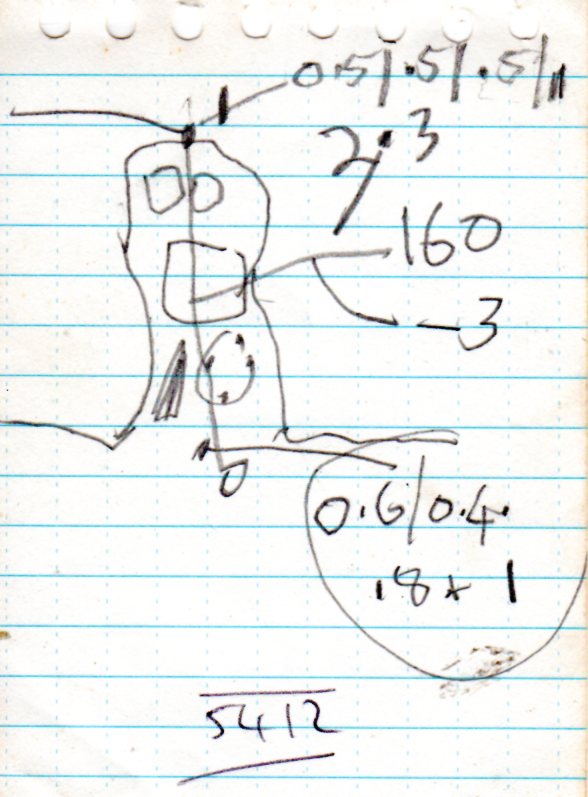 1 0.5/.5/.5/1
2.3
160
-3
0
0.6/0.4
.8+1
5412